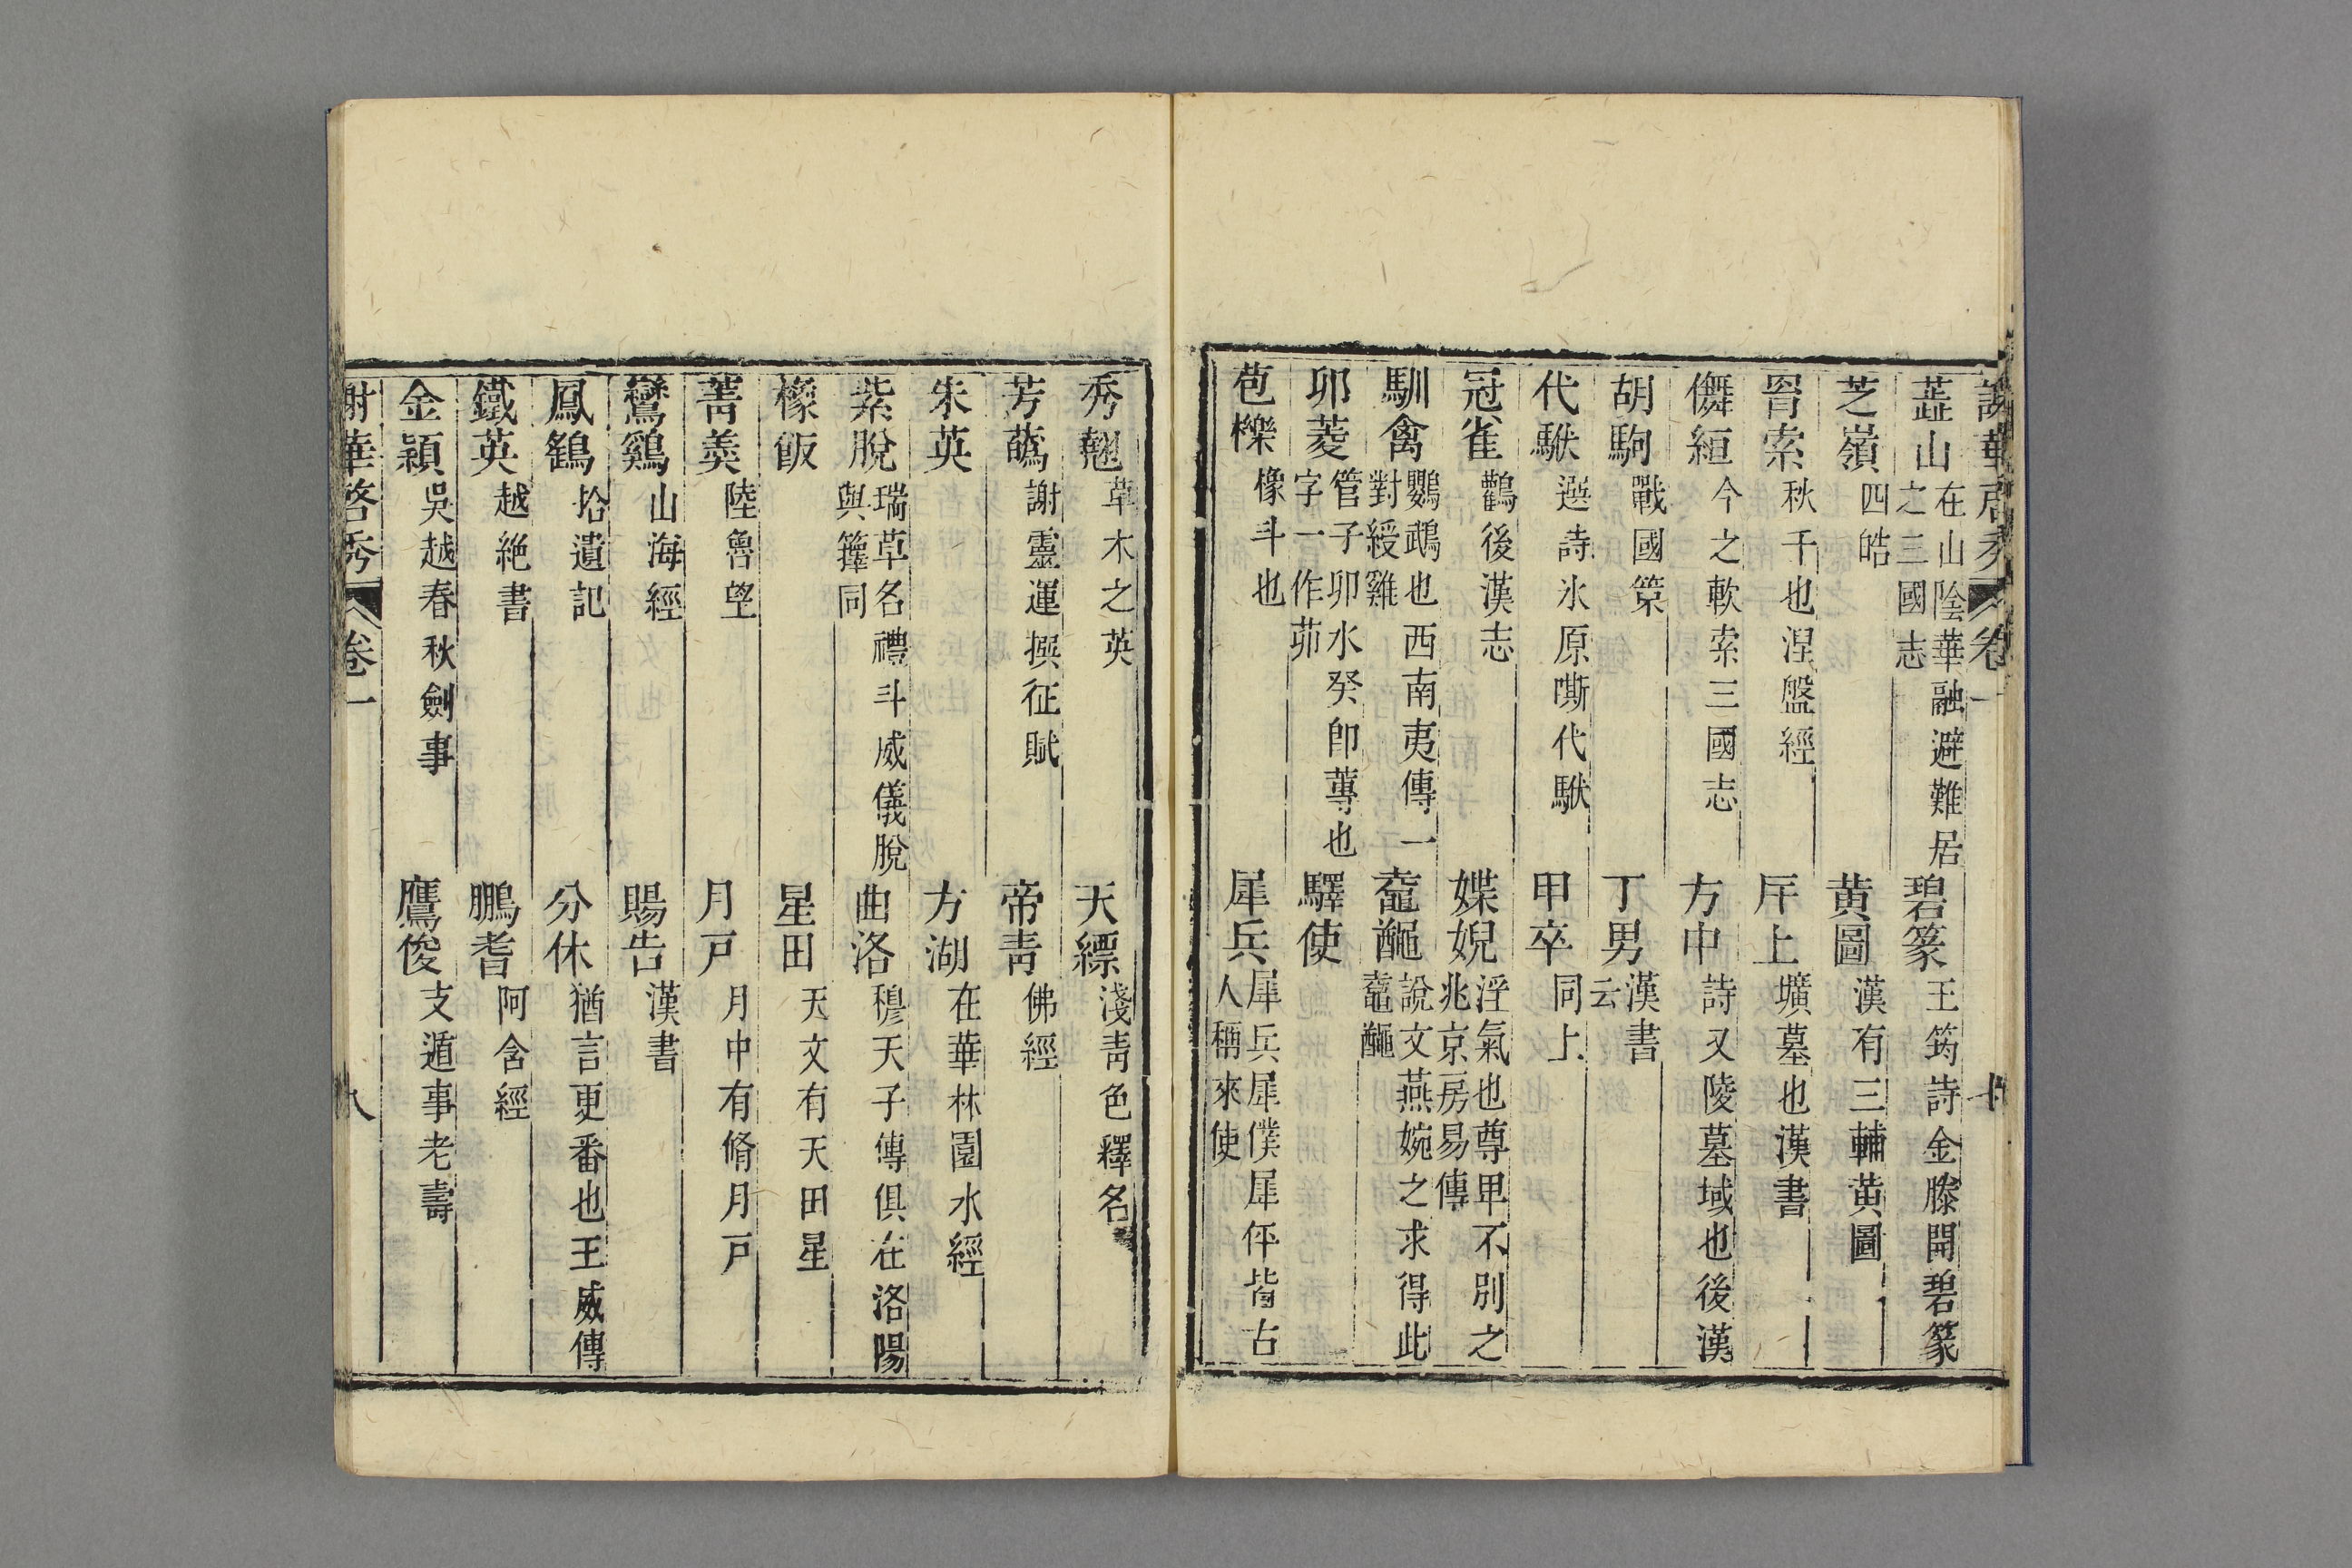 謝華啓秀 卷一
蕋山 在山陰華融避難居之三國志 碧篆 王筠詩金縢開碧篆
芝嶺 四皓 黄圖 漢有三輔黄圖
罥索 秋千也涅盤經 厈上 壙墓也漢書
儛絙 今之軟索三國志 方中 詩又陵墓域也後漢
胡駒 戰國策 丁男 漢書云
代駥 選詩氷原嘶代駥 甲卒 同上
冠雀 鸛後漢志 媟婗 淫氣也尊卑不別之兆京房易傳
馴禽 鸚鵡也西南夷傳一對綬雞 鼀䵸 說文燕婉之求得此鼀䵸
卯菱 管子卯卯水癸卽蓴也字一作茆 驛使
苞櫟 橡斗也 犀兵 犀兵犀僕犀伻皆古人稱來使
秀翹 草木之英 天縹 淺靑色釋名
芳蘤 謝靈運撰征賦 帝靑 佛經
朱英 方湖 在華林園水經
紫脫 瑞草名禮斗威儀脫與籜同 曲洛 穆天子傳俱在洛陽
橡飯 星田 天文有天田星
菁羮 陸魯望 月戸 月中有脩月戸
鸞鷄 山海經 賜告 漢書
鳳鶴 拾遺記 分休 猶言更番也王威傳
鐵英 越絶書 鵬耆 阿含經
金穎 吳越春秋劍事 鷹俊 支遁事老壽
謝華啓秀 卷一 八